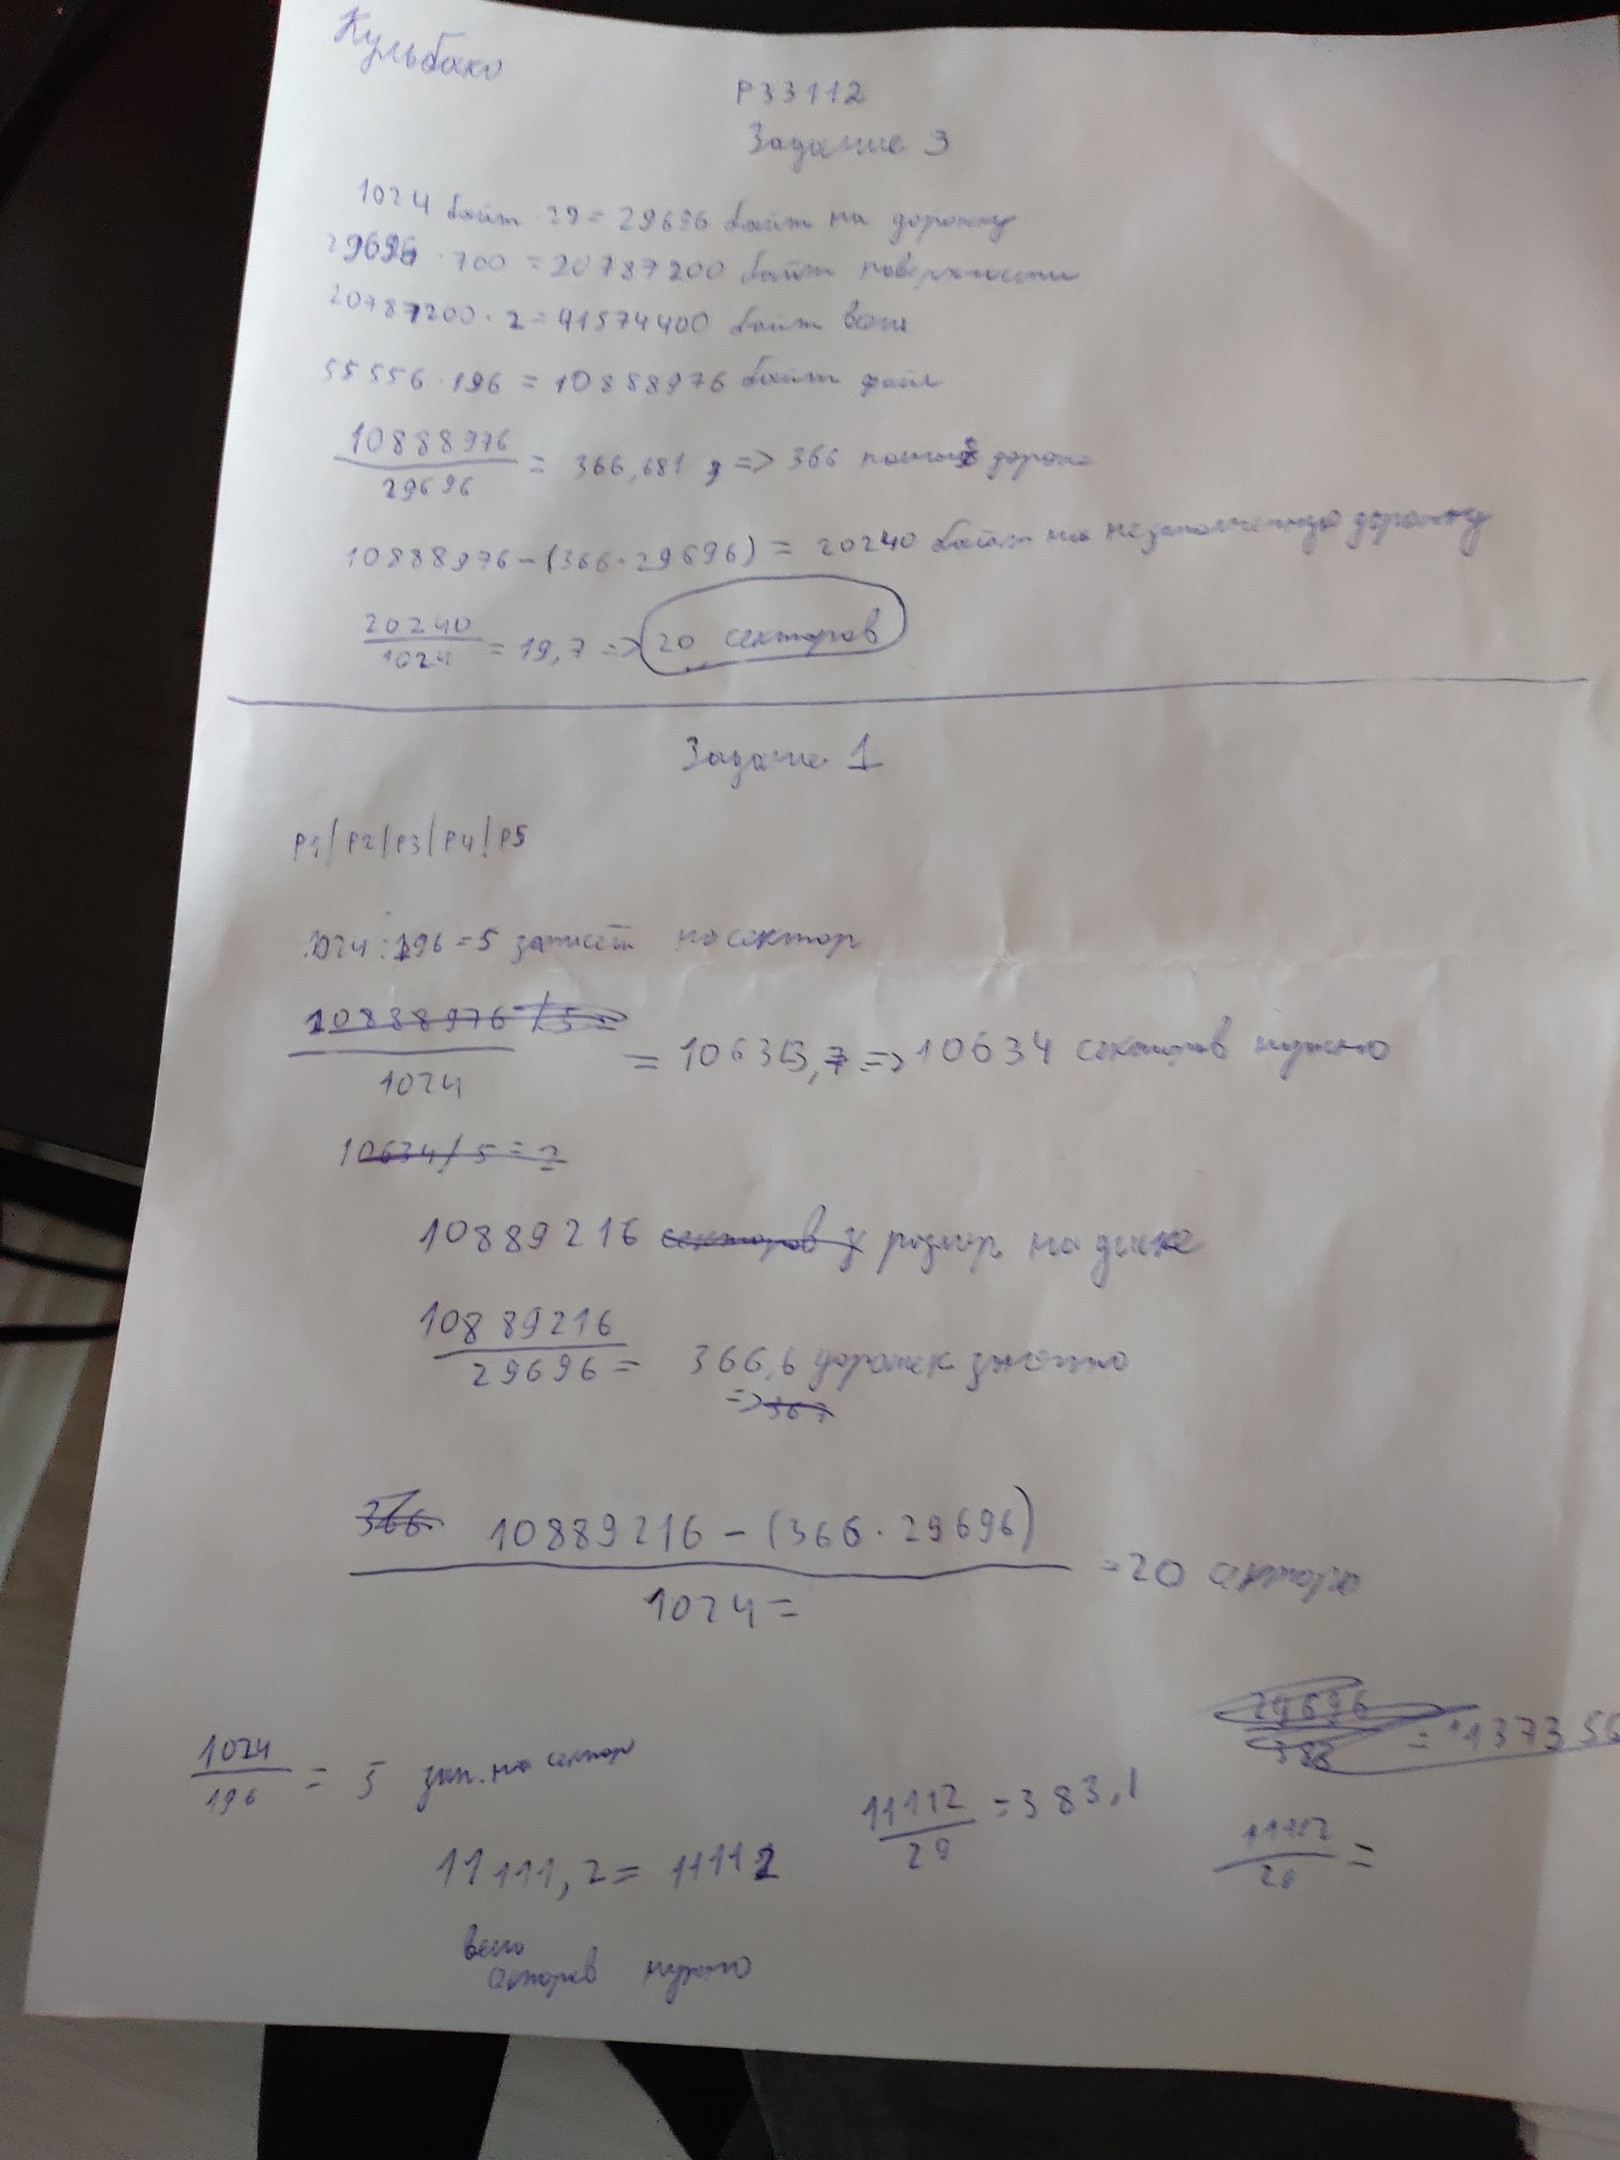 Кульбако
P33112
Задание 3
1024 байт · 29 = 29696 байт на дорожку
29696 · 700 = 20787200 байт поверхности
20787200 · 2 = 41574400 байт всего
55556 · 196 = 10888976 байт файл
10888976 / 29696 = 366,681 => 366 полных дорожек
10888976 - (366 · 29696) = 20240 байт на незаполненную дорожку
20240 / 1024 = 19,7 => 20 секторов
Задание 1
P1 | P2 | P3 | P4 | P5
1024 : 196 = 5 записей на сектор
10888976 / 5 =
1024
= 10633,7 => 10634 секторов нужно
10634 / 5 = ?
10889216 секторов размер на диске
10889216 / 29696 = 366,6 дорожек занято
=> 367
366. 10889216 - (366 · 29696)
1024 =
= 20 сектора
1024 / 196 = 5 зап. на сектор
11111,2 = 11112
всего
секторов нужно
11112 / 29 = 383,1
29696
= 137356
11112 / 29 =